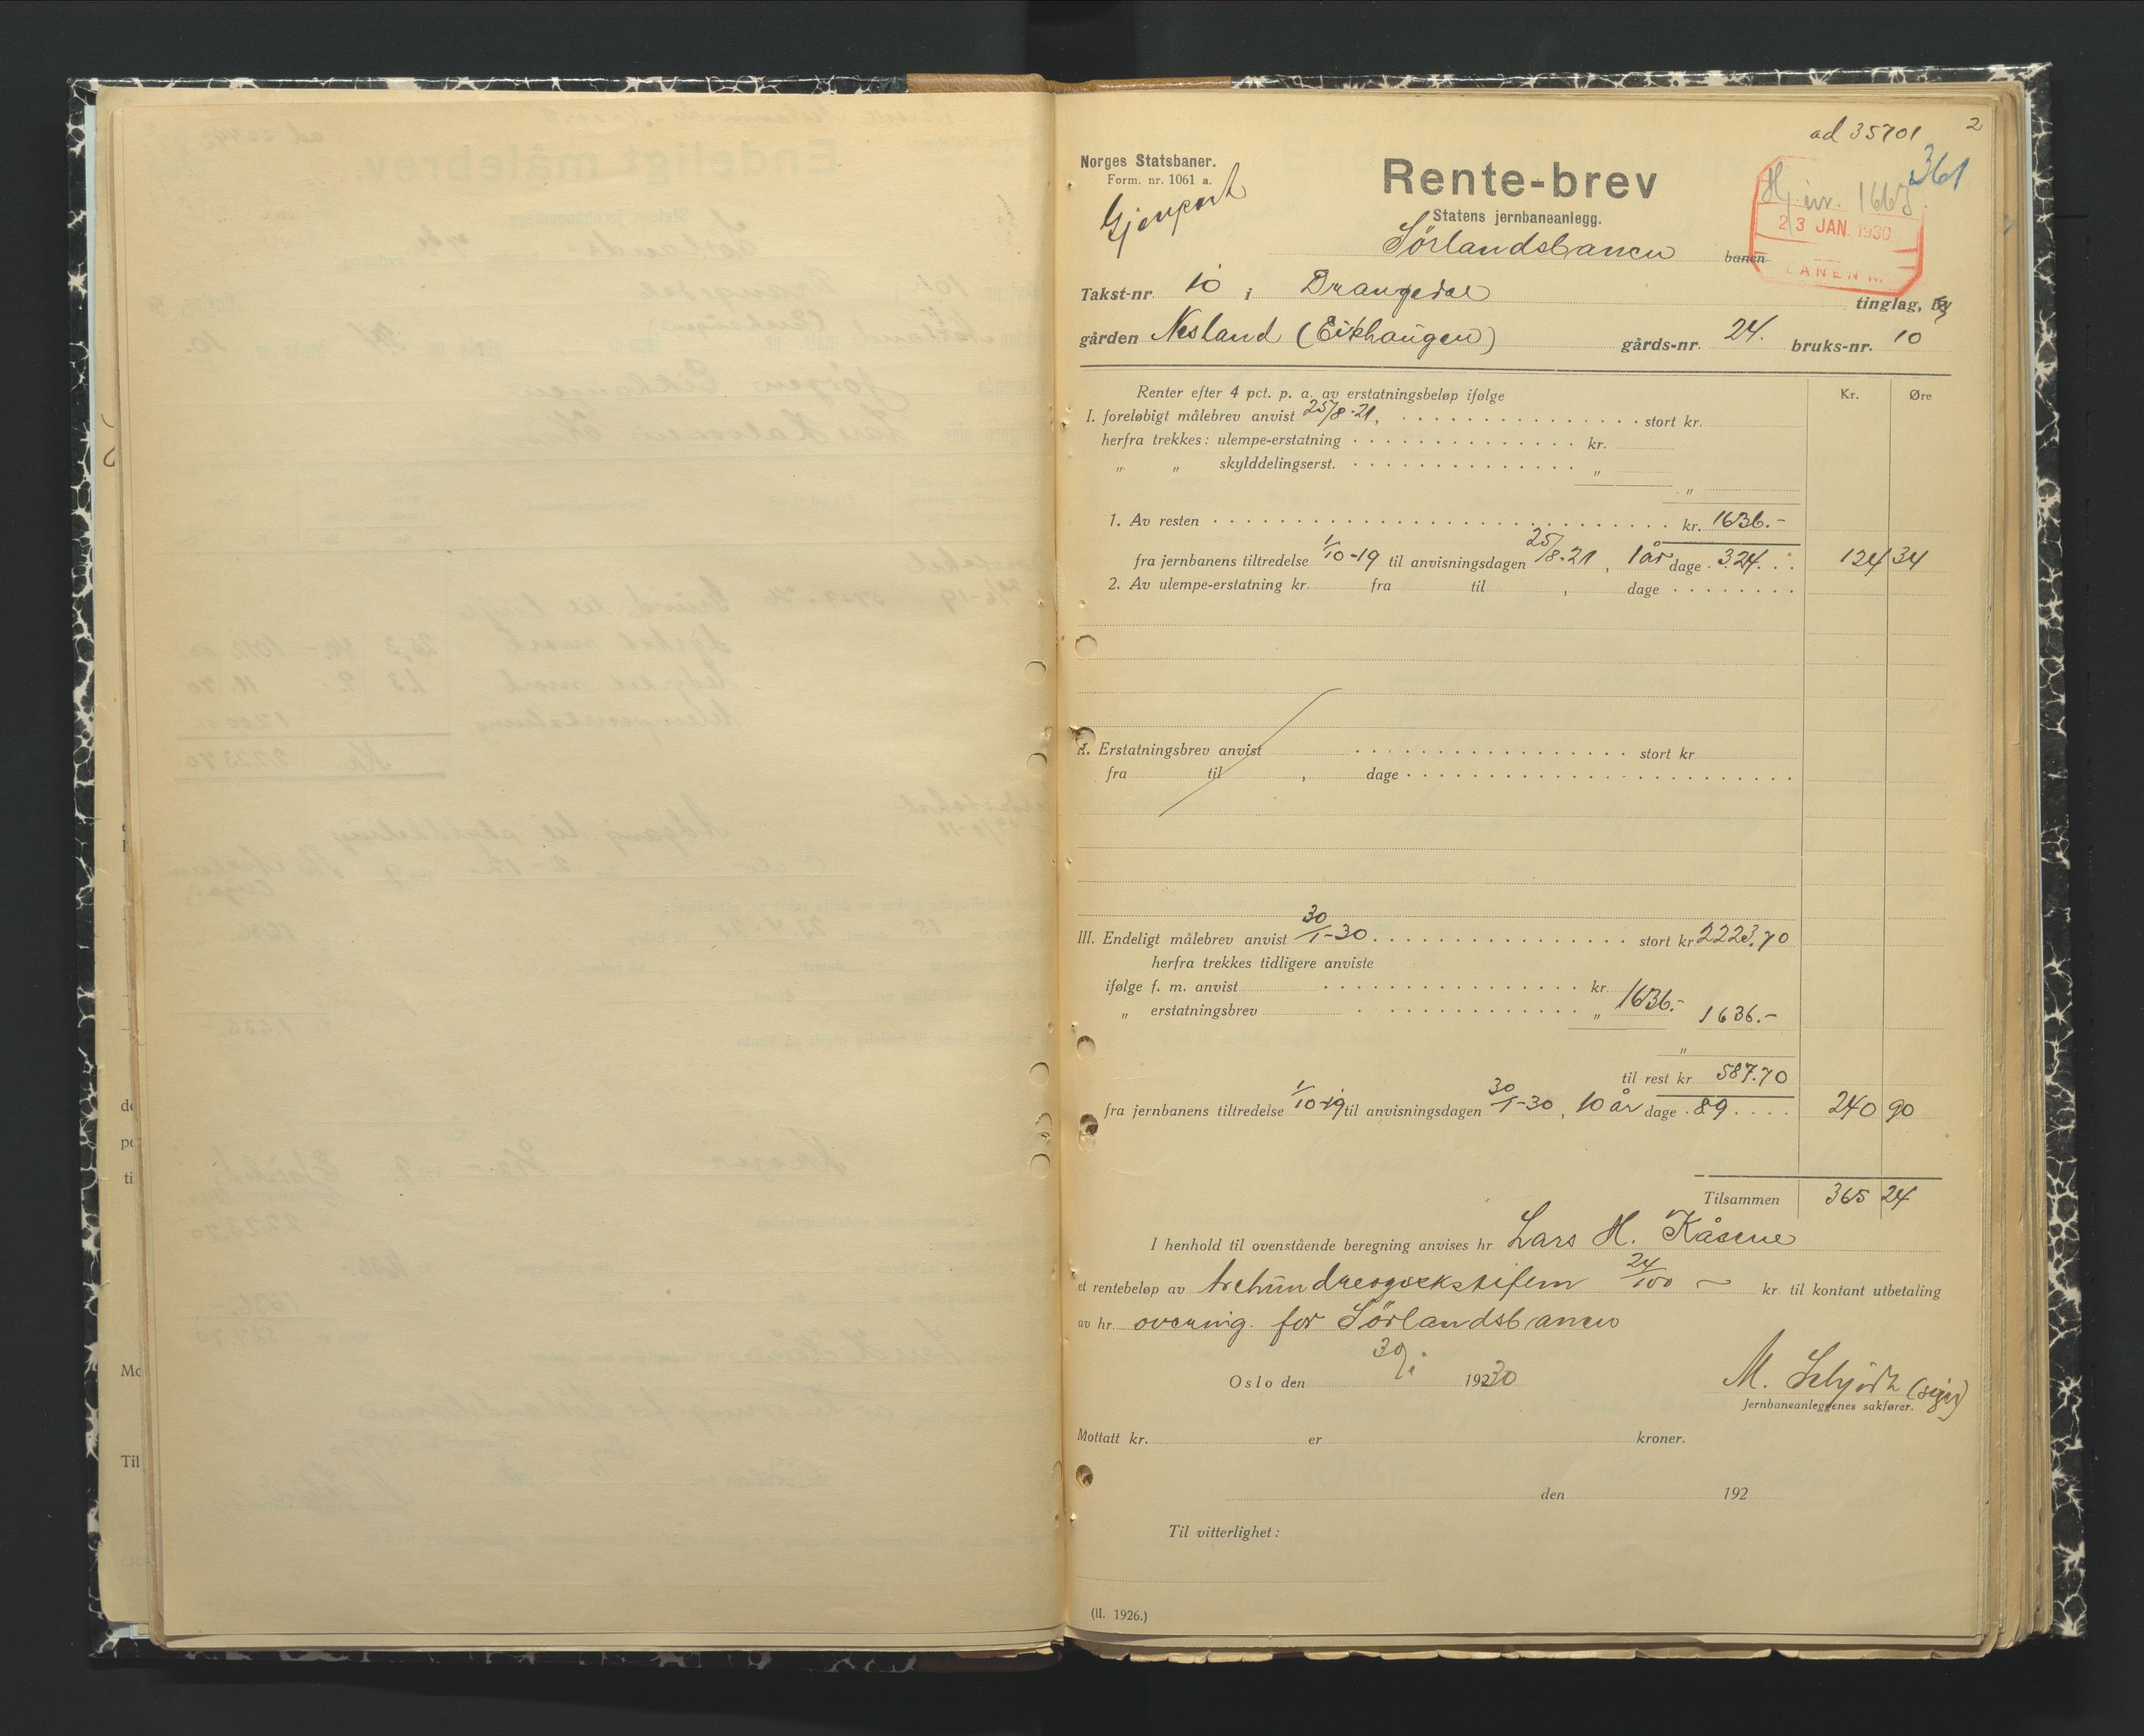 ad 35701
2
361
Norges Statsbaner.
Form. nr. 1061 a.
Gjenpart
Rente-brev
Statens jernbaneanlegg.
Hj nr. 1665.
23 JAN. 1930
BANEN
Sørlandsbanen banen
Takst-nr. 10 i Drangedal tinglag,
gården Nesland (Eikhaugen) gårds-nr. 24. bruks-nr. 10
Renter efter 4 pct. p. a. av erstatningsbeløp ifølge Kr. Øre
I. foreløbigt målebrev anvist 25/8-21, stort kr.
herfra trekkes: ulempe-erstatning kr.
„ „ skylddelingserst. „
„
1. Av resten kr. 1636.-
fra jernbanens tiltredelse 1/10-19 til anvisningsdagen 25/8-21, 1 år dage 324. 124 34
2. Av ulempe-erstatning kr. fra til , dage
II. Erstatningsbrev anvist stort kr
fra til , dage
III. Endeligt målebrev anvist 30/1-30 stort kr 2223.70
herfra trekkes tidligere anviste
ifølge f. m. anvist kr. 1636.-
„ erstatningsbrev „ 1636.-
„
til rest kr 587.70
fra jernbanens tiltredelse 1/10-19 til anvisningsdagen 30/1-30, 10 år dage 89 240 90
Tilsammen 365 24
I henhold til ovenstående beregning anvises hr. Lars H. Kåsene
et rentebeløp av trehundreogsekstifem 24/100 kr. til kontant utbetaling
av hr. overing. for Sørlandsbanen
Oslo den 30/1 1930
M. Schjødt (sign)
Jernbaneanleggenes sakfører.
Mottatt kr. er kroner.
den 192
Til vitterlighet:
(II. 1926.)